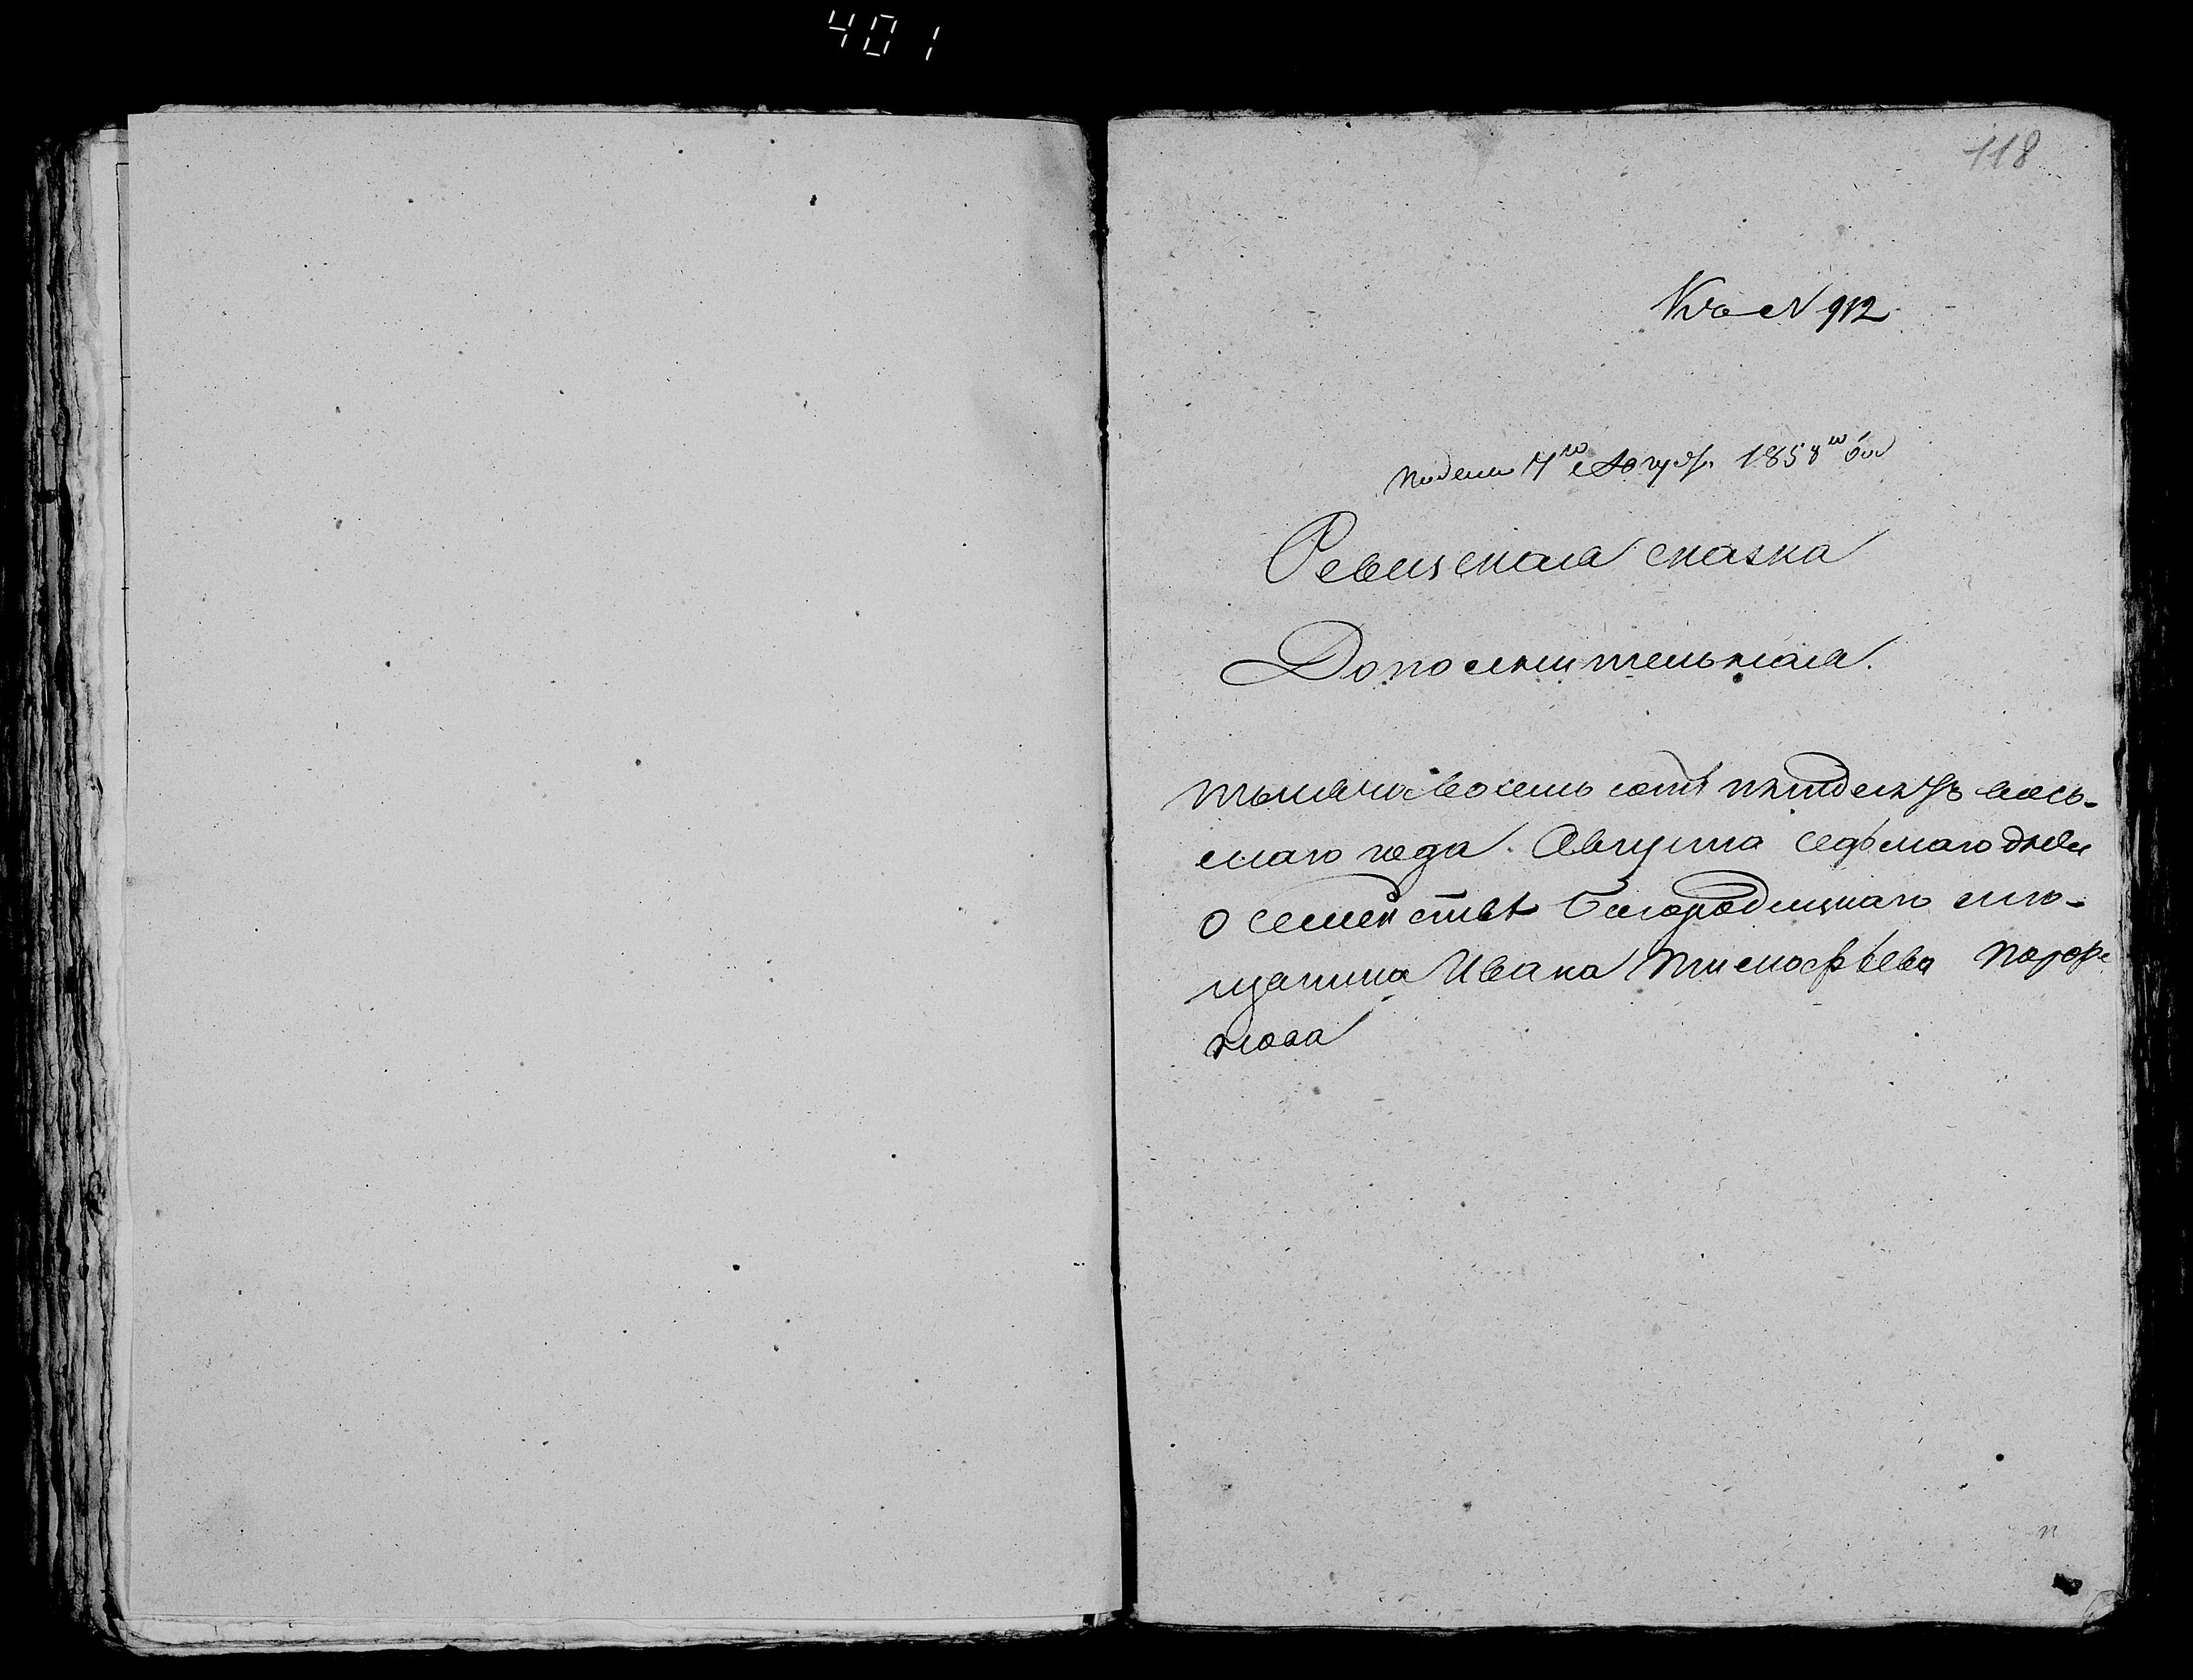 401
118
К № 912
Подана 7го Август. 1858го года
Ревизская сказка
Дополнительная.
тысяча восемь сотъ пятьдесятъ вось-
маго года. Августа седьмаго дня
о семействѣ Богородицкаго мѣ-
щанина Ивана Тимофѣева
нова